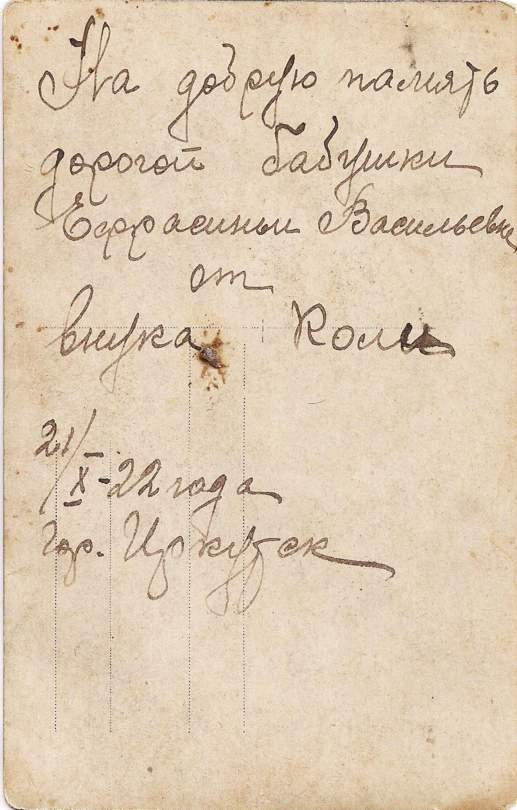 На добрую память
дорогой бабушки
Ефрасиньи Васильевне
от
внука Коли
21/X-22 года
гор. Иркутск